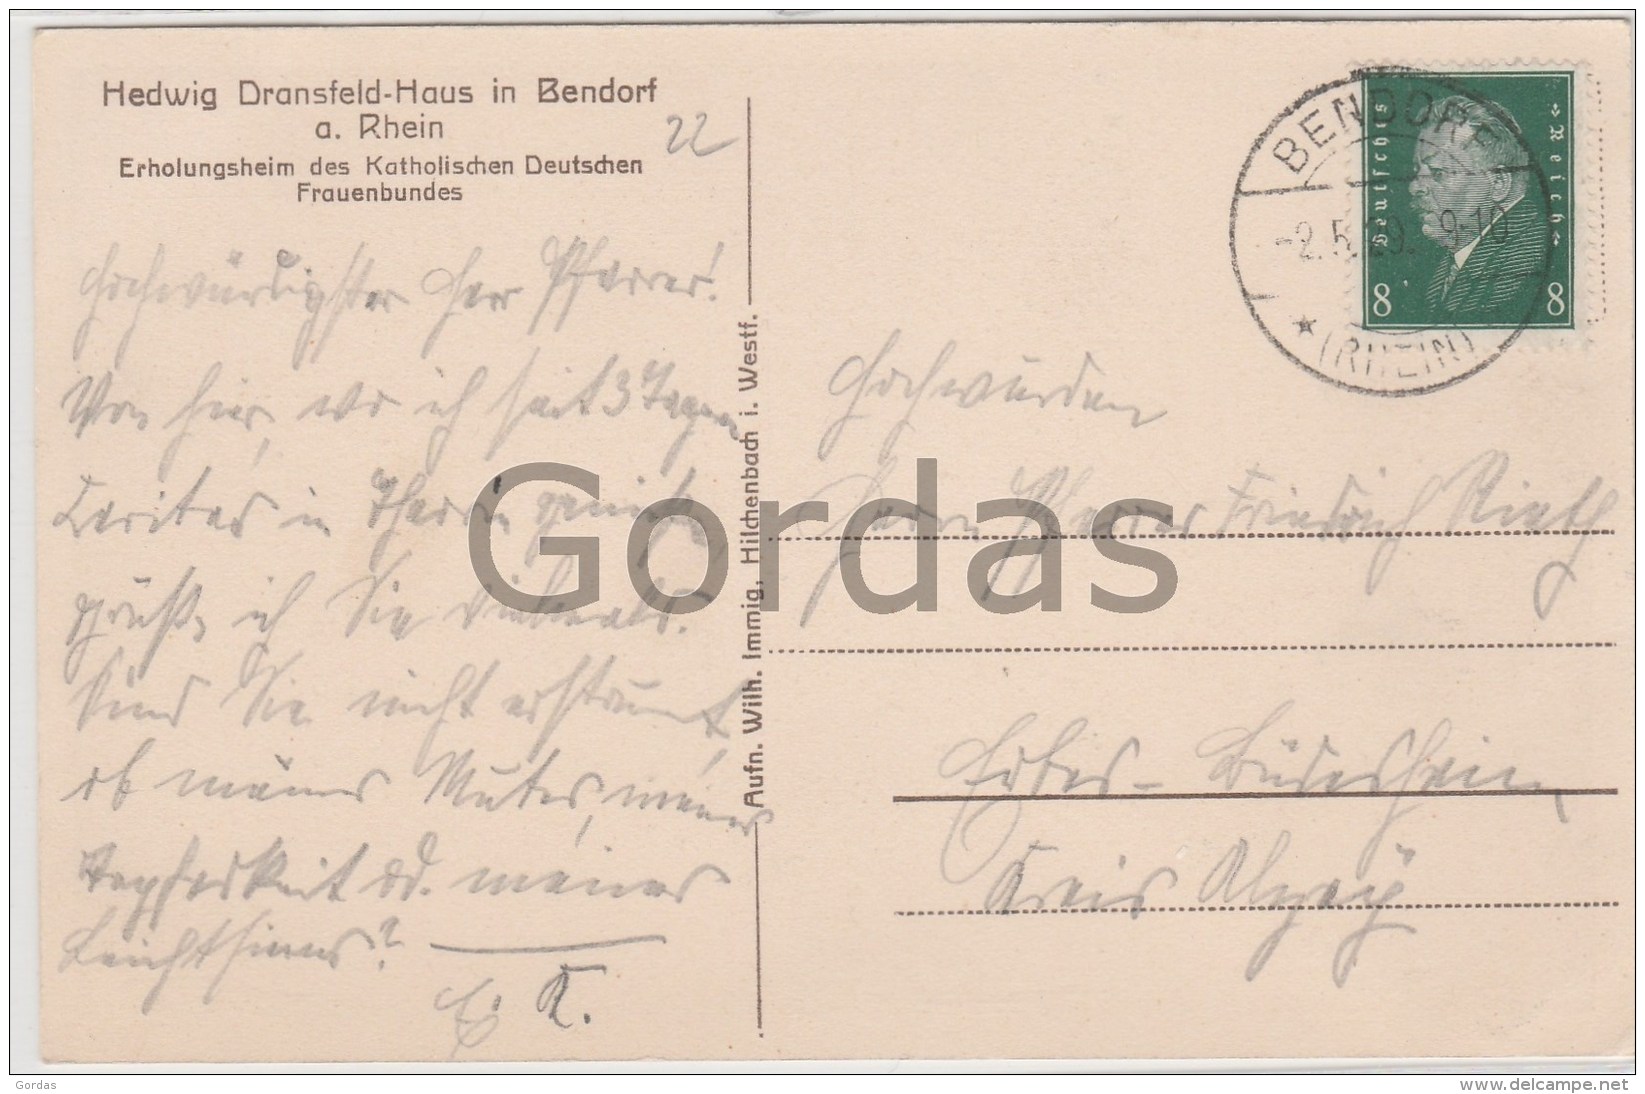 Hedwig Dransfeld-Haus in Bendorf
a. Rhein
Erholungsheim des Katholischen Deutschen
Frauenbundes
22
Hochwürdigster Herr Pfarrer!
Von hier, wo ich seit 3 Tagen
Caritas in
grüße ich Sie vielmals.
Sind Sie nicht erstaunt
ob meines Mutes, meiner
Tapferkeit od. meines
Leichtsinns?
E. K.
Aufn. Wilh. Immig, Hilchenbach i. Westf.
BENDORF
-2.5.29. 9-10
(RHEIN)
Deutsches Reich
8 8
Hochwürden
Herrn Pfarrer Friedrich
Erbes-Büdesheim
Kreis Alzey
Gordas
Gordas
www.delcampe.net